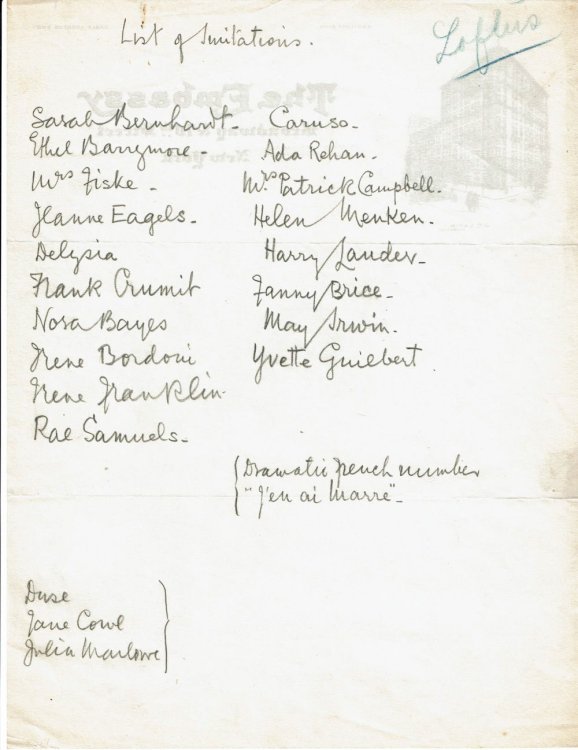 List of Imitations.
Loftus
Sarah Bernhardt-
Ethel Barrymore-
Mrs Fiske-
Jeanne Eagels-
Delysia
Frank Crumit
Nora Bayes
Irene Bordoni
Irene Franklin-
Rae Samuels-
Caruso-
Ada Rehan-
Mrs Patrick Campbell-
Helen Menken-
Harry Lauder-
Fanny Brice-
May Irwin-
Yvette Guilbert
Dramatic french number
"J'en ai Marre"-
Duse
Jane Cowl
Julia Marlowe
The Embassy
New York